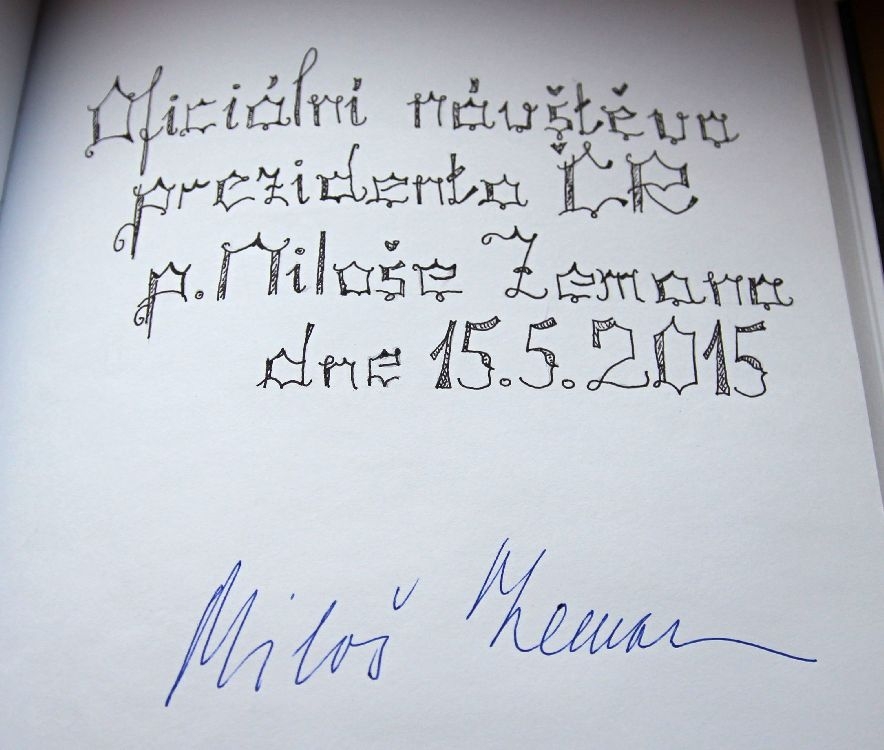 Oficiální návštěva
prezidenta ČR
p. Miloše Zemana
dne 15.5.2015
Miloš Zeman